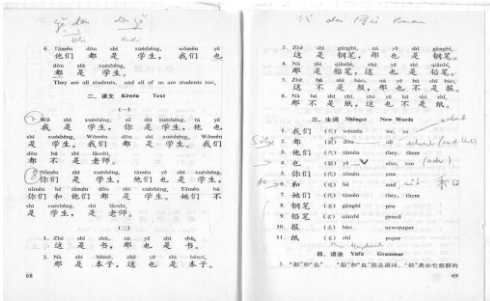 6. Tāmen dōu shì xuésheng, wǒmen yě
他们 都 是 学生, 我们 也
dōu shì xuésheng.
都 是 学生。
They are all students, and all of us are students too.
二、课文 Kèwén Text
(一)
1. Wǒ shì xuésheng, nǐ shì xuésheng, tā yě
我 是 学生, 你 是 学生, 他 也
shì xuésheng. Wǒmen dōu shì xuésheng. Wǒmen
是 学生。 我们 都 是 学生。 我们
dōu bú shì lǎoshī.
都 不 是 老师。
2. Nǐmen shì xuésheng, tāmen yě shì xuésheng.
你们 是 学生, 他们 也 是 学生。
Nǐmen hé tāmen dōu shì xuésheng. Tāmen bú
你们 和 他们 都 是 学生。 她们 不
shì xuésheng, shì lǎoshī.
是 学生, 是 老师。
(二)
1. Zhè shì shū, nà yě shì shū.
这 是 书, 那 也 是 书。
2. Nà shì běnzi, zhè yě shì běnzi.
那 是 本子, 这 也 是 本子。
68
3. Zhè shì gāngbǐ, nà yě shì gāngbǐ.
这 是 钢笔, 那 也 是 钢笔。
4. Nà shì qiānbǐ, zhè yě shì qiānbǐ.
那 是 铅笔, 这 也 是 铅笔。
5. Zhè bú shì bào, nà yě bú shì bào.
这 不 是 报, 那 也 不 是 报。
6. Nà bú shì zhǐ, zhè yě bú shì zhǐ.
那 不 是 纸, 这 也 不 是 纸。
三、生词 Shēngcí New Words
1. 我们 (代) wǒmen we, us
2. 都 (副) dōu all
3. 他们 (代) tāmen they, them
4. 也 (副) yě also, too
5. 你们 (代) nǐmen you
6. 和 (连) hé and
7. 她们 (代) tāmen they, them
8. 钢笔 (名) gāngbǐ pen
9. 铅笔 (名) qiānbǐ pencil
10. 报 (名) bào newspaper
11. 纸 (名) zhǐ paper
四、语法 Yǔfǎ Grammar
69